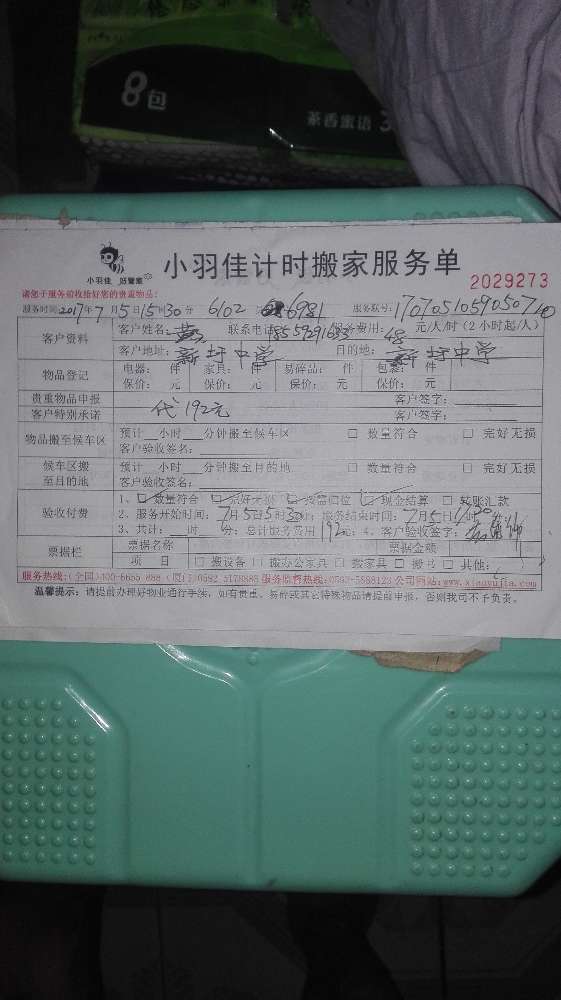 8包
茶香蜜语 3
小羽佳 好管家
小羽佳计时搬家服务单
2029273
请您于服务前收拾好您的贵重物品:
服务时间:2017年7月5日15时30分 6102 6981 服务联号:
客户资料 客户姓名: 联系电话: 服务费用:48 元/人/时(2小时起/人)
客户地址:新圩中学 目的地:新圩中学
物品登记 电器: 件 家具: 件 易碎品: 件 包裹: 件
保价: 元 保价: 元 保价: 元 保价: 元
贵重物品申报 客户签字:
客户特别承诺 代192元 客户签字:
物品搬至候车区 预计___小时___分钟搬至候车区 □ 数量符合 □ 完好无损
客户验收签名:
候车区搬至目的地 预计___小时___分钟搬至目的地 □ 数量符合 □ 完好无损
客户验收签名:
验收付费 1、□数量符合 □完好无损 □按需归位 □现金结算 □转账汇款
2、服务开始时间:7月5日 服务结束时间:7月5日
3、共计: 时 分; 总计服务费用192元; 4、客户验收签字:
票据栏 票据名称 票据金额
项 目 □ 搬设备 □ 搬办公家具 □ 搬家具 □ 搬书 □ 其他:
服务热线:(全国)400-6655 888 (厦门)0592 5178888 服务监督热线:0592-5888123 公司网站:www.xiaoyujia.com
温馨提示:请提前办理好物业通行手续,如有贵重、易碎或其它特殊物品请提前申报,否则我司不予负责。